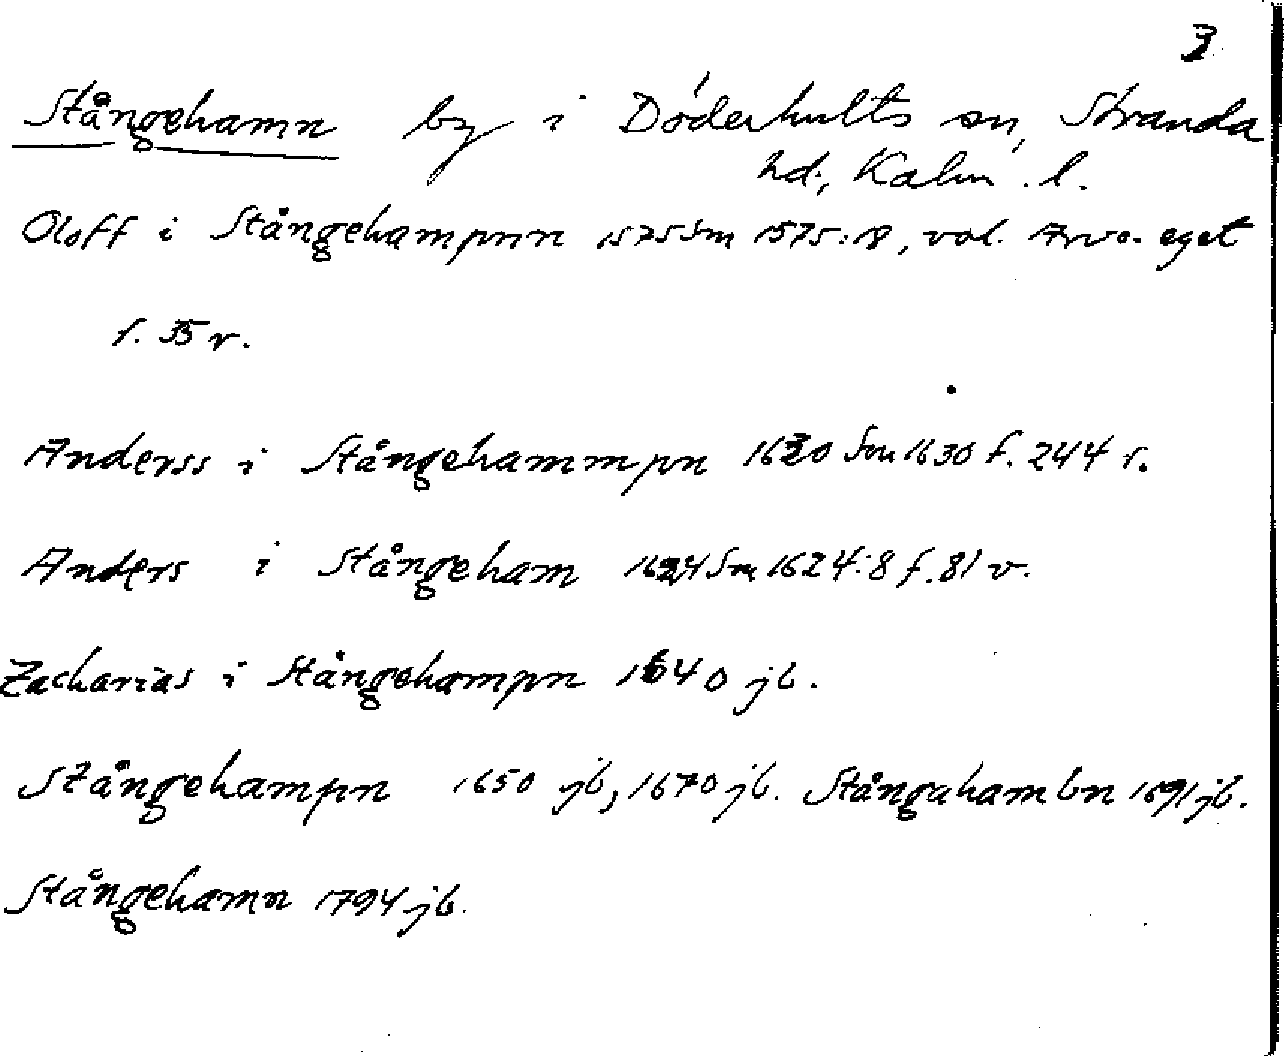 3
Stångehamn by i Döderhults sn, Stranda
hd, Kalm. l.
Oloff i Stångehampnn 1575 Sm 1575:18, vol. Arvo. eget
f. 35 r.
Anderss i Stångehammpn 1630 Sm 1630 f. 244 r.
Anders i Stångeham 1624 Sm 1624:8 f. 81 v.
Zacharias i Stångehampn 1640 jb.
Stångehampn 1650 jb, 1670 jb. Stångahambn 1691 jb.
Stångehamn 1794 jb.